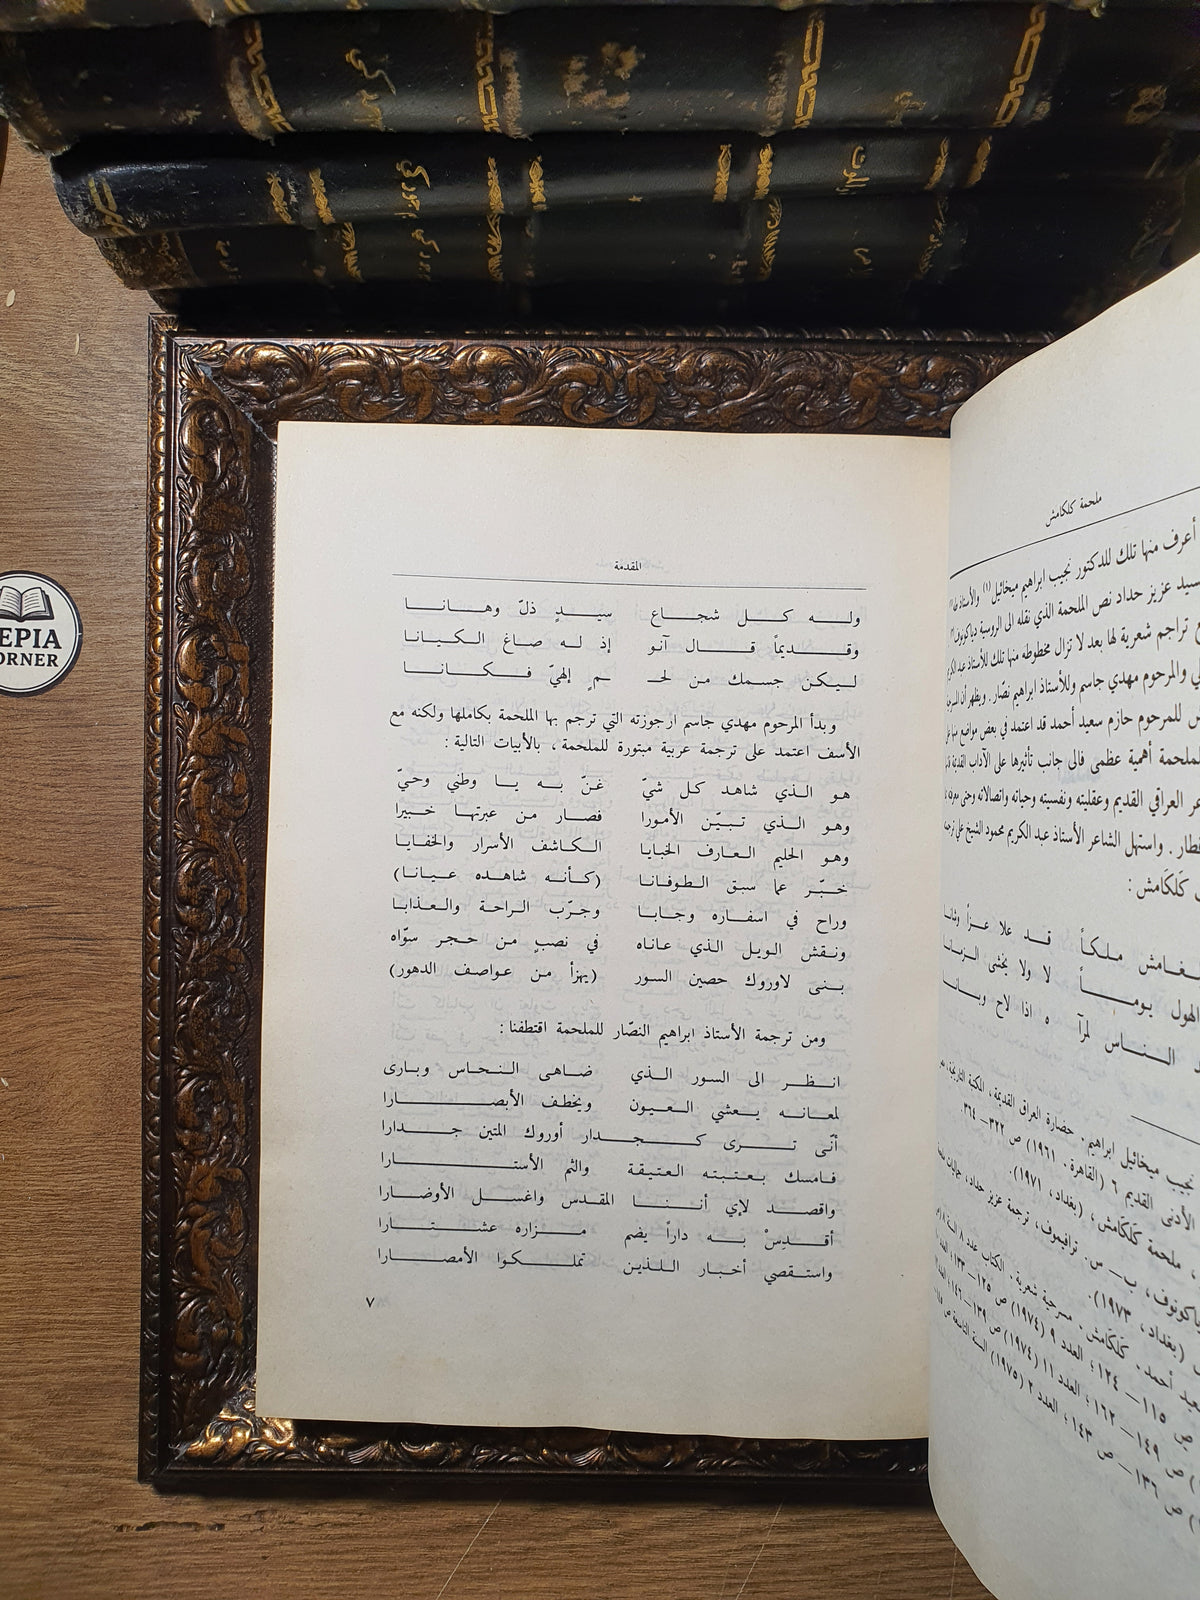 ملحمة كلكامش
أعرف منها تلك للدكتور نجيب ابراهيم ميخائيل (١) والأستاذ
سيد عزيز حداد نص الملحمة الذي نقله الى الروسية دياكونوف
تراجم شعرية لها بعد لا تزال مخطوطه منها تلك للأستاذ عبد
والمرحوم مهدي جاسم وللأستاذ ابراهيم نصّار . ويظهر أن
للمرحوم حازم سعيد أحمد قد اعتمد في بعض مواضع منها
لملحمة أهمية عظمى فالى جانب تأثيرها على الآداب القديمة
العراقي القديم وعقليته ونفسيته وحياته واتصالاته وحتى
واستهل الشاعر الأستاذ عبد الكريم محمود الشيخ علي
كلكامش :
ملكاً قد علا عزاً
الهول يوماً لا ولا يخشى
الناس لمرآ ه اذا لاح
نجيب ميخائيل ابراهيم . حضارة العراق القديمة ، المكتبة التاريخية ،
الأدنى القديم ٦ (القاهرة ، ١٩٦١) ص ٣٢٢ــ٣٦٤
ملحمة كلكامش ، (بغداد ، ١٩٧١).
ب ــ س . ترافيموف ، ترجمة عزيز حداد ،
(بغداد ، ١٩٧٣).
أحمد . كلكامش . مسرحية شعرية . الكتاب عدد ٨
ص ١١٥ــ ١٢٤ ؛ العدد ٩ (١٩٧٤) ص ١٢٥ــ ١٣٣ ؛
ص ١٤٩ــ ١٦٢ ؛ العدد ١١ (١٩٧٤) ص ١٣٩ــ١٤٦ ؛
ص ١٣٦ــ ص ١٤٣ ؛ العدد ٢ (١٩٧٥) السنة التاسعة ص
المقدمة
وله كل شجاع سيدٍ ذلّ وهانا
وقديماً قال آنو إذ له صاغ الكيانا
ليكن جسمك من لحـ ـم إلهيّ فكانا
وبدأ المرحوم مهدي جاسم ارجوزته التي ترجم بها الملحمة بكاملها ولكنه مع
الأسف اعتمد على ترجمة عربية مبتورة للملحمة ، بالأبيات التالية :
هو الذي شاهد كل شيّ غنّ به يا وطني وحيّ
وهو الذي تبيّن الأمورا فصار من عبرتها خبيرا
وهو الحليم العارف الخبايا الكاشف الأسرار والخفايا
خبّر عما سبق الطوفانا (كأنه شاهده عيانا)
وراح في اسفاره وجابا وجرّب الراحة والعذابا
ونقش الويل الذي عاناه في نصبٍ من حجر سوّاه
بنى لاوروك حصين السور (يهزأ من عواصف الدهور)
ومن ترجمة الأستاذ ابراهيم النصّار للملحمة اقتطفنا :
انظر الى السور الذي ضاهى النحاس وبارى
لمعانه يعشي العيون ويخطف الأبصارا
أنّى ترى كجدار أوروك المتين جدارا
فامسك بعتبته العتيقة والثم الأستارا
واقصد لإي أننا المقدس واغسل الأوضارا
أقدِسْ به داراً يضم مزاره عشتارا
واستقصي أخبار اللذين تملكوا الأمصارا
٧
EPIA
ORNER